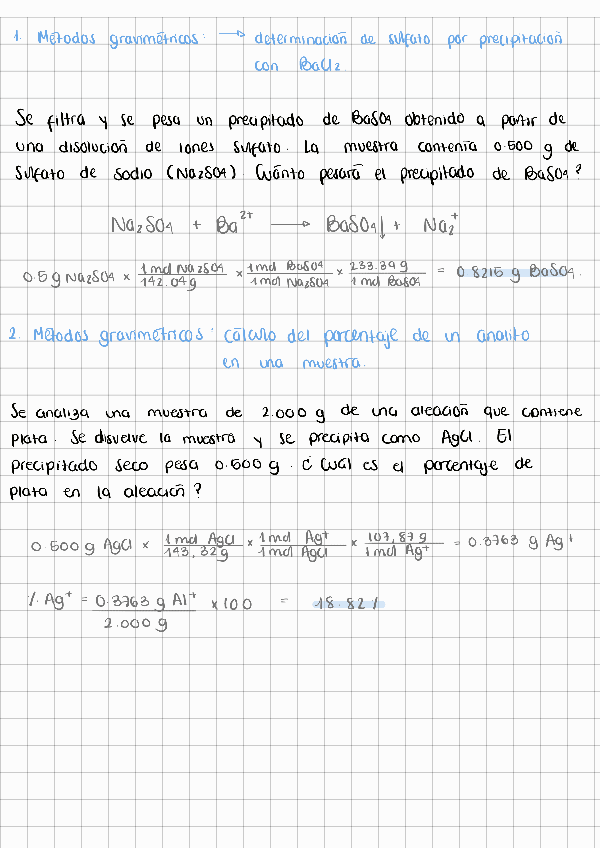 1. Métodos gravimétricos: → determinación de sulfato por precipitación
con BaCl2.
Se filtra y se pesa un precipitado de BaSO4 obtenido a partir de
una disolución de iones sulfato. La muestra contenía 0.500 g de
sulfato de sodio (Na2SO4). Cuánto pesará el precipitado de BaSO4?
Na2SO4 + Ba²⁺ → BaSO4↓ + Na2⁺
0.5 g Na2SO4 × 1 mol Na2SO4 / 142.04 g × 1 mol BaSO4 / 1 mol Na2SO4 × 233.39 g / 1 mol BaSO4 = 0.8215 g BaSO4.
2. Métodos gravimétricos: cálculo del porcentaje de un analito
en una muestra.
Se analiza una muestra de 2.000 g de una aleación que contiene
plata. Se disuelve la muestra y se precipita como AgCl. El
precipitado seco pesa 0.500 g. ¿Cuál es el porcentaje de
plata en la aleación?
0.500 g AgCl × 1 mol AgCl / 143,32 g × 1 mol Ag⁺ / 1 mol AgCl × 107,87 g / 1 mol Ag⁺ = 0.3763 g Ag⁺
% Ag⁺ = 0.3763 g Al⁺ / 2.000 g × 100 = 18.82 %